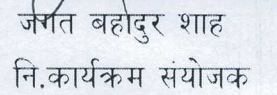 जगत बहादुर शाह
नि.कार्यक्रम संयोजक